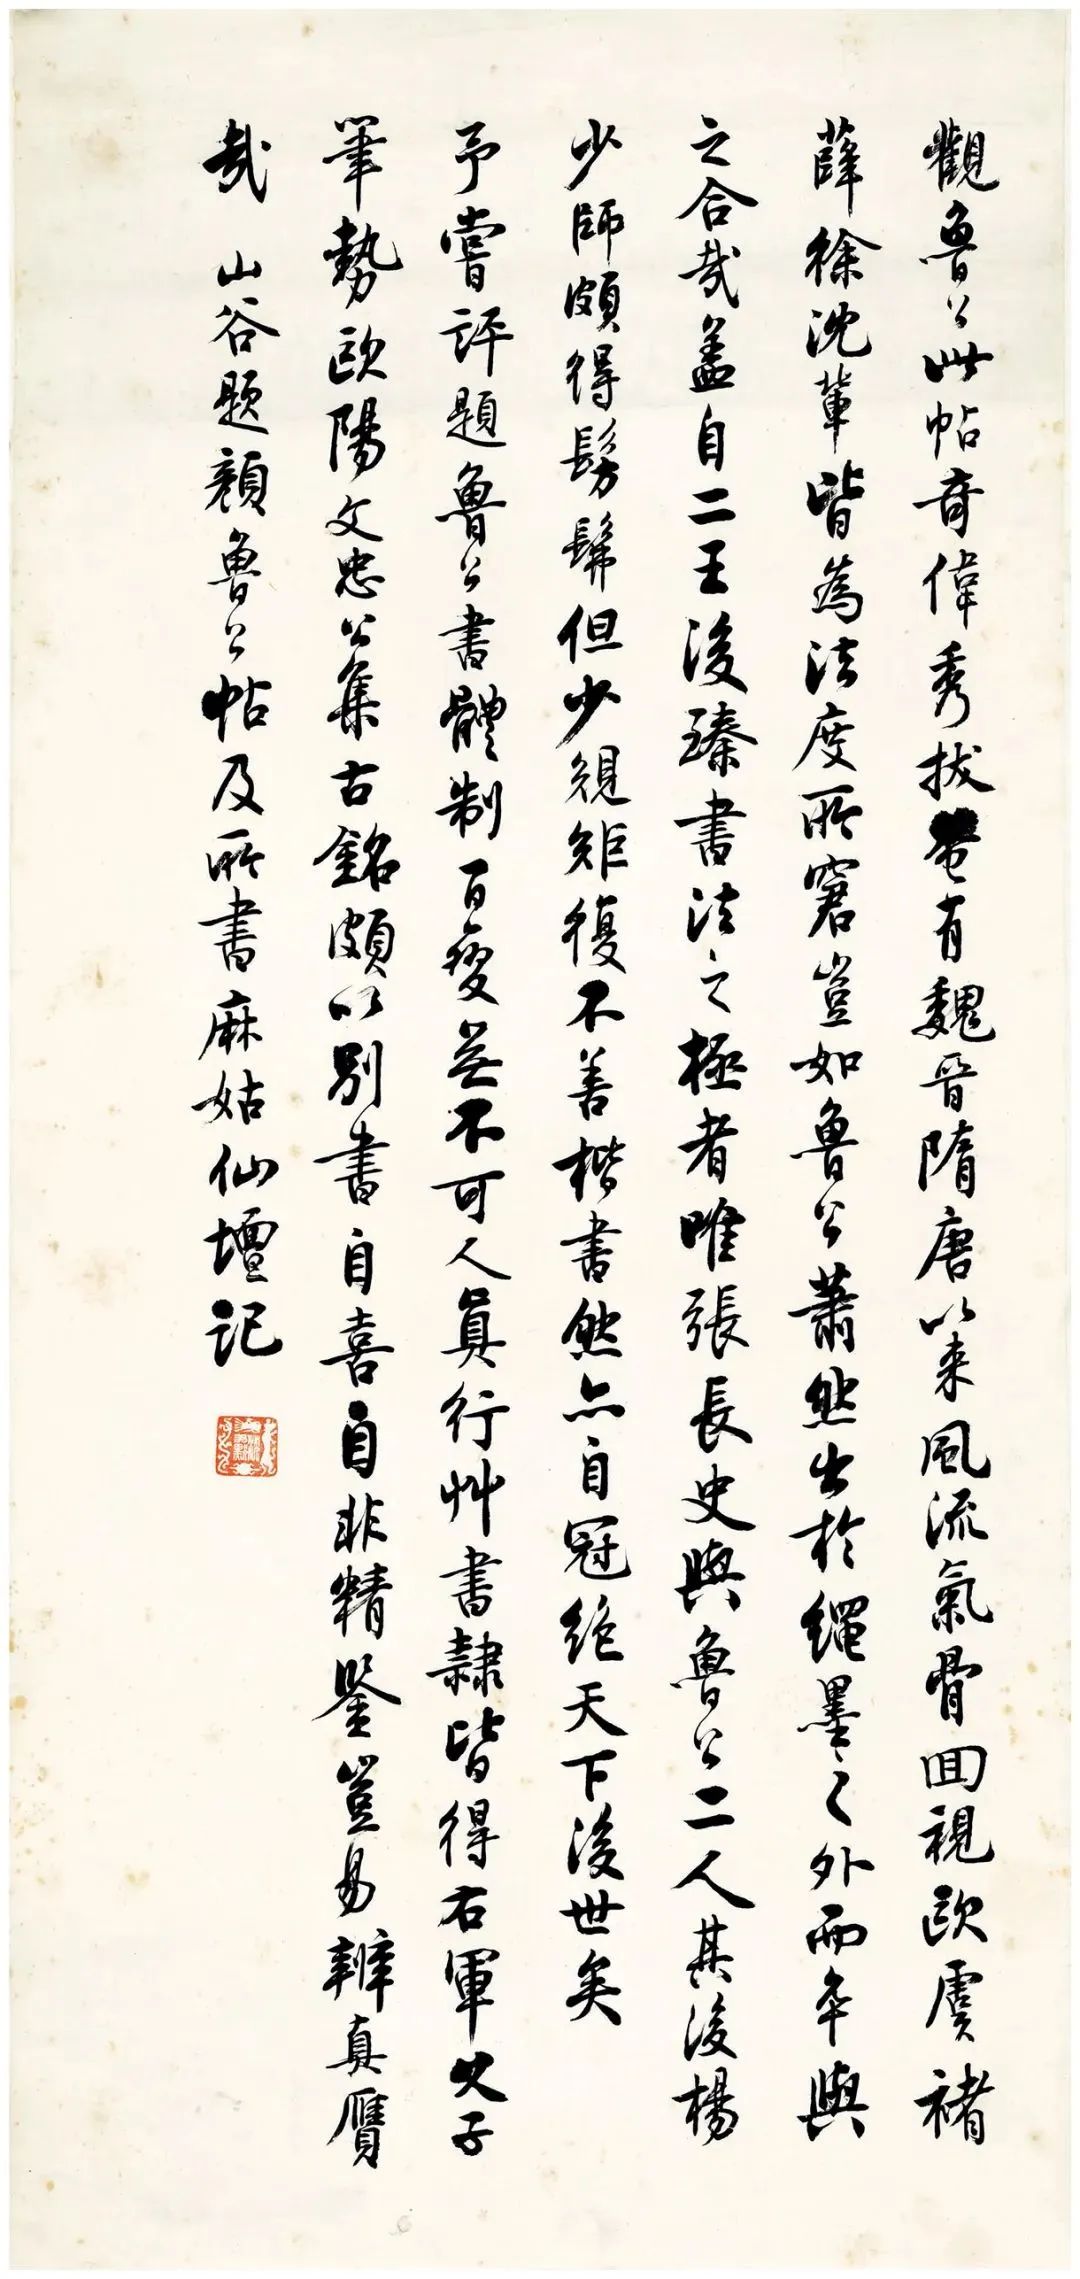 觀魯公此帖奇偉秀拔奄有魏晉隋唐以来風流氣骨囬視歐虞褚
薛徐沈輩皆為法度所窘豈如魯公蕭然出於繩墨之外而卒與
之合哉盖自二王後臻書法之極者唯張長史與魯公二人其後楊
少師頗得髣髴但少規矩復不善楷書然亦自冠絶天下後世矣
予嘗評題魯公書體制百變無不可人真行艸書隷皆得右軍父子
筆勢歐陽文忠公集古銘頗以別書自喜自非精鑒豈易辨真贋
哉 山谷题顔魯公帖及所書麻姑仙壇記